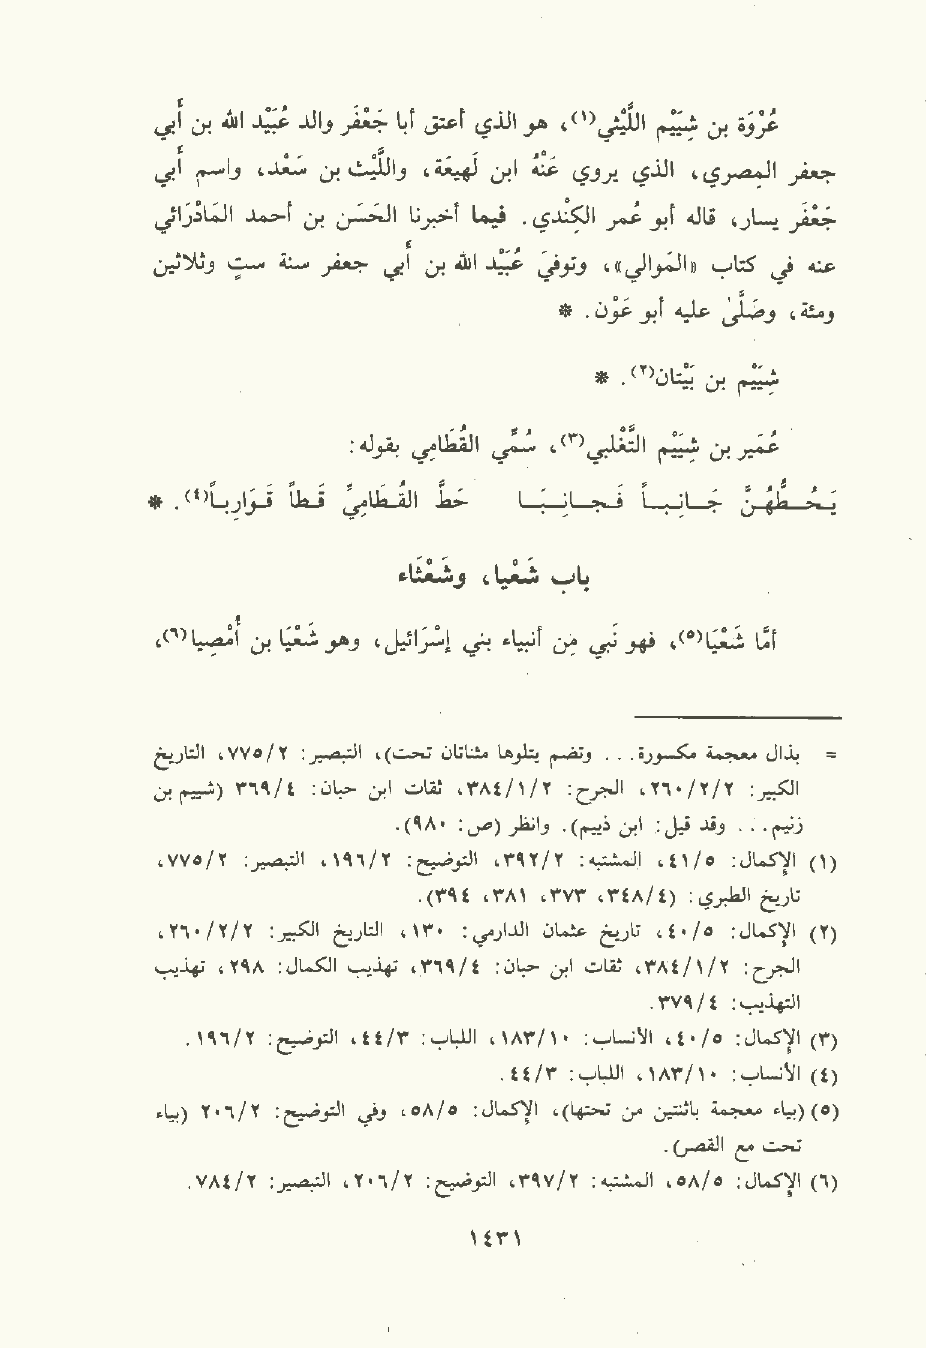 عُرْوَة بن شِيَيْم اللَّيْثي(١)، هو الذي أعتق أبا جَعْفَر والد عُبَيْد الله بن أَبي
جعفر المِصري، الذي يروي عَنْهُ ابن لَهِيعَة، واللَّيْث بن سَعْد، واسم أَبي
جَعْفَر يسار، قاله أبو عُمر الكِنْدي. فيما أخبرنا الحَسَن بن أحمد المَاذَرائي
عنه في كتاب «المَوالي»، وتوفيَ عُبَيْد الله بن أَبي جعفر سنة ستٍ وثلاثين
ومئة، وصَلَّىٰ عليه أبو عَوْن. *
شِيَيْم بن بَيْتان(٢). *
عُمَير بن شِيَيْم التَّغْلبي(٣)، سُمِّي القُطَامِي بقوله:
يَحُطُّهُنَّ جَانِباً فَجَانِبَا خَطَّ القَطَامِيِّ قَطاً قَوَارِباً(٤). *
باب شَعْيا، وشَعْثَاء
أمَّا شَعْيَا(٥)، فهو نَبي مِن أنبياء بني إسْرَائيل، وهو شَعْيَا بن أُمْصِيا(٦)،
= بذال معجمة مكسورة... وتضم يتلوها مثناتان تحت)، التبصير: ٧٧٥/٢، التاريخ
الكبير: ٢٦٠/٢/٢، الجرح: ٣٨٤/١/٢، ثقات ابن حبان: ٣٦٩/٤ (شييم بن
زنيم... وقد قيل: ابن ذييم). وانظر (ص: ٩٨٠).
(١) الإكمال: ٤١/٥، المشتبه: ٣٩٢/٢، التوضيح: ١٩٦/٢، التبصير: ٧٧٥/٢،
تاريخ الطبري: (٣٤٨/٤، ٣٧٣، ٣٨١، ٣٩٤).
(٢) الإكمال: ٤٠/٥، تاريخ عثمان الدارمي: ١٣٠، التاريخ الكبير: ٢٦٠/٢/٢،
الجرح: ٣٨٤/١/٢، ثقات ابن حبان: ٣٦٩/٤، تهذيب الكمال: ٢٩٨، تهذيب
التهذيب: ٣٧٩/٤.
(٣) الإكمال: ٤٠/٥، الأنساب: ١٨٣/١٠، اللباب: ٤٤/٣، التوضيح: ١٩٦/٢.
(٤) الأنساب: ١٨٣/١٠، اللباب: ٤٤/٣.
(٥) (بياء معجمة باثنتين من تحتها)، الإكمال: ٥٨/٥، وفي التوضيح: ٢٠٦/٢ (بياء
تحت مع القصر).
(٦) الإكمال: ٥٨/٥، المشتبه: ٣٩٧/٢، التوضيح: ٢٠٦/٢، التبصير: ٧٨٤/٢.
١٤٣١